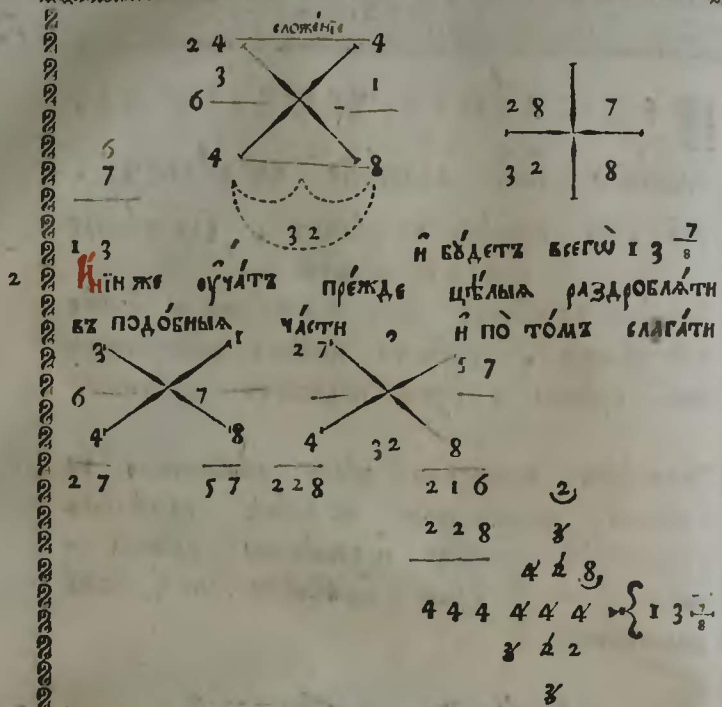 сложе́нїе
2 4 4
3 1
6 7
4 8
3 2
2 8 7
3 2 8
6
7
1 3
и҆ бꙋ́детъ всегѡ̀ 1 3 7/8
2 И҆нїи же ᲂу҆ча́тъ пре́жде цѣ́лыѧ раздроблѧ́ти
въ подо́бныѧ ча́сти , и҆ по то́мъ слага́ти
3 1 2 7 5 7
6 7
4 8 4 3 2 8
2 7 5 7 2 2 8 2 1 6
2 2 8
2
3
4 2 8
4 4 4 4 4 4 { 1 3 7/8
3 2 2
3